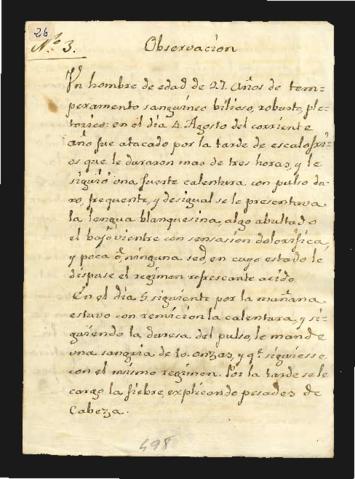 26
N.º 3.
Observacion
Un hombre de edad de 27. años de tem-
peramento sanguineo bilioso, robusto, ple-
torico: en el dia 4 Agosto del corriente
año fue atacado por la tarde de escalofri-
os que le duraron mas de tres horas, y le
siguió una fuerte calentura con pulso du-
ro, frequente, y desigual se le presentava
la lengua blanquesina, algo abultado
el bajo vientre con sensasion dolorifica,
y poca ó ninguna sed, en cuyo estado le
dispuse el regimen refrescante acido.
En el dia 5 siguiente por la mañana
estuvo con remicion la calentura, y si-
guiendo la duresa del pulso, le mande
una sangria de 10. onzas, y q.e siguiesse
con el mismo regimen. Por la tarde se le
cargo la fiebre, explicando pesades de
Cabeza.
498